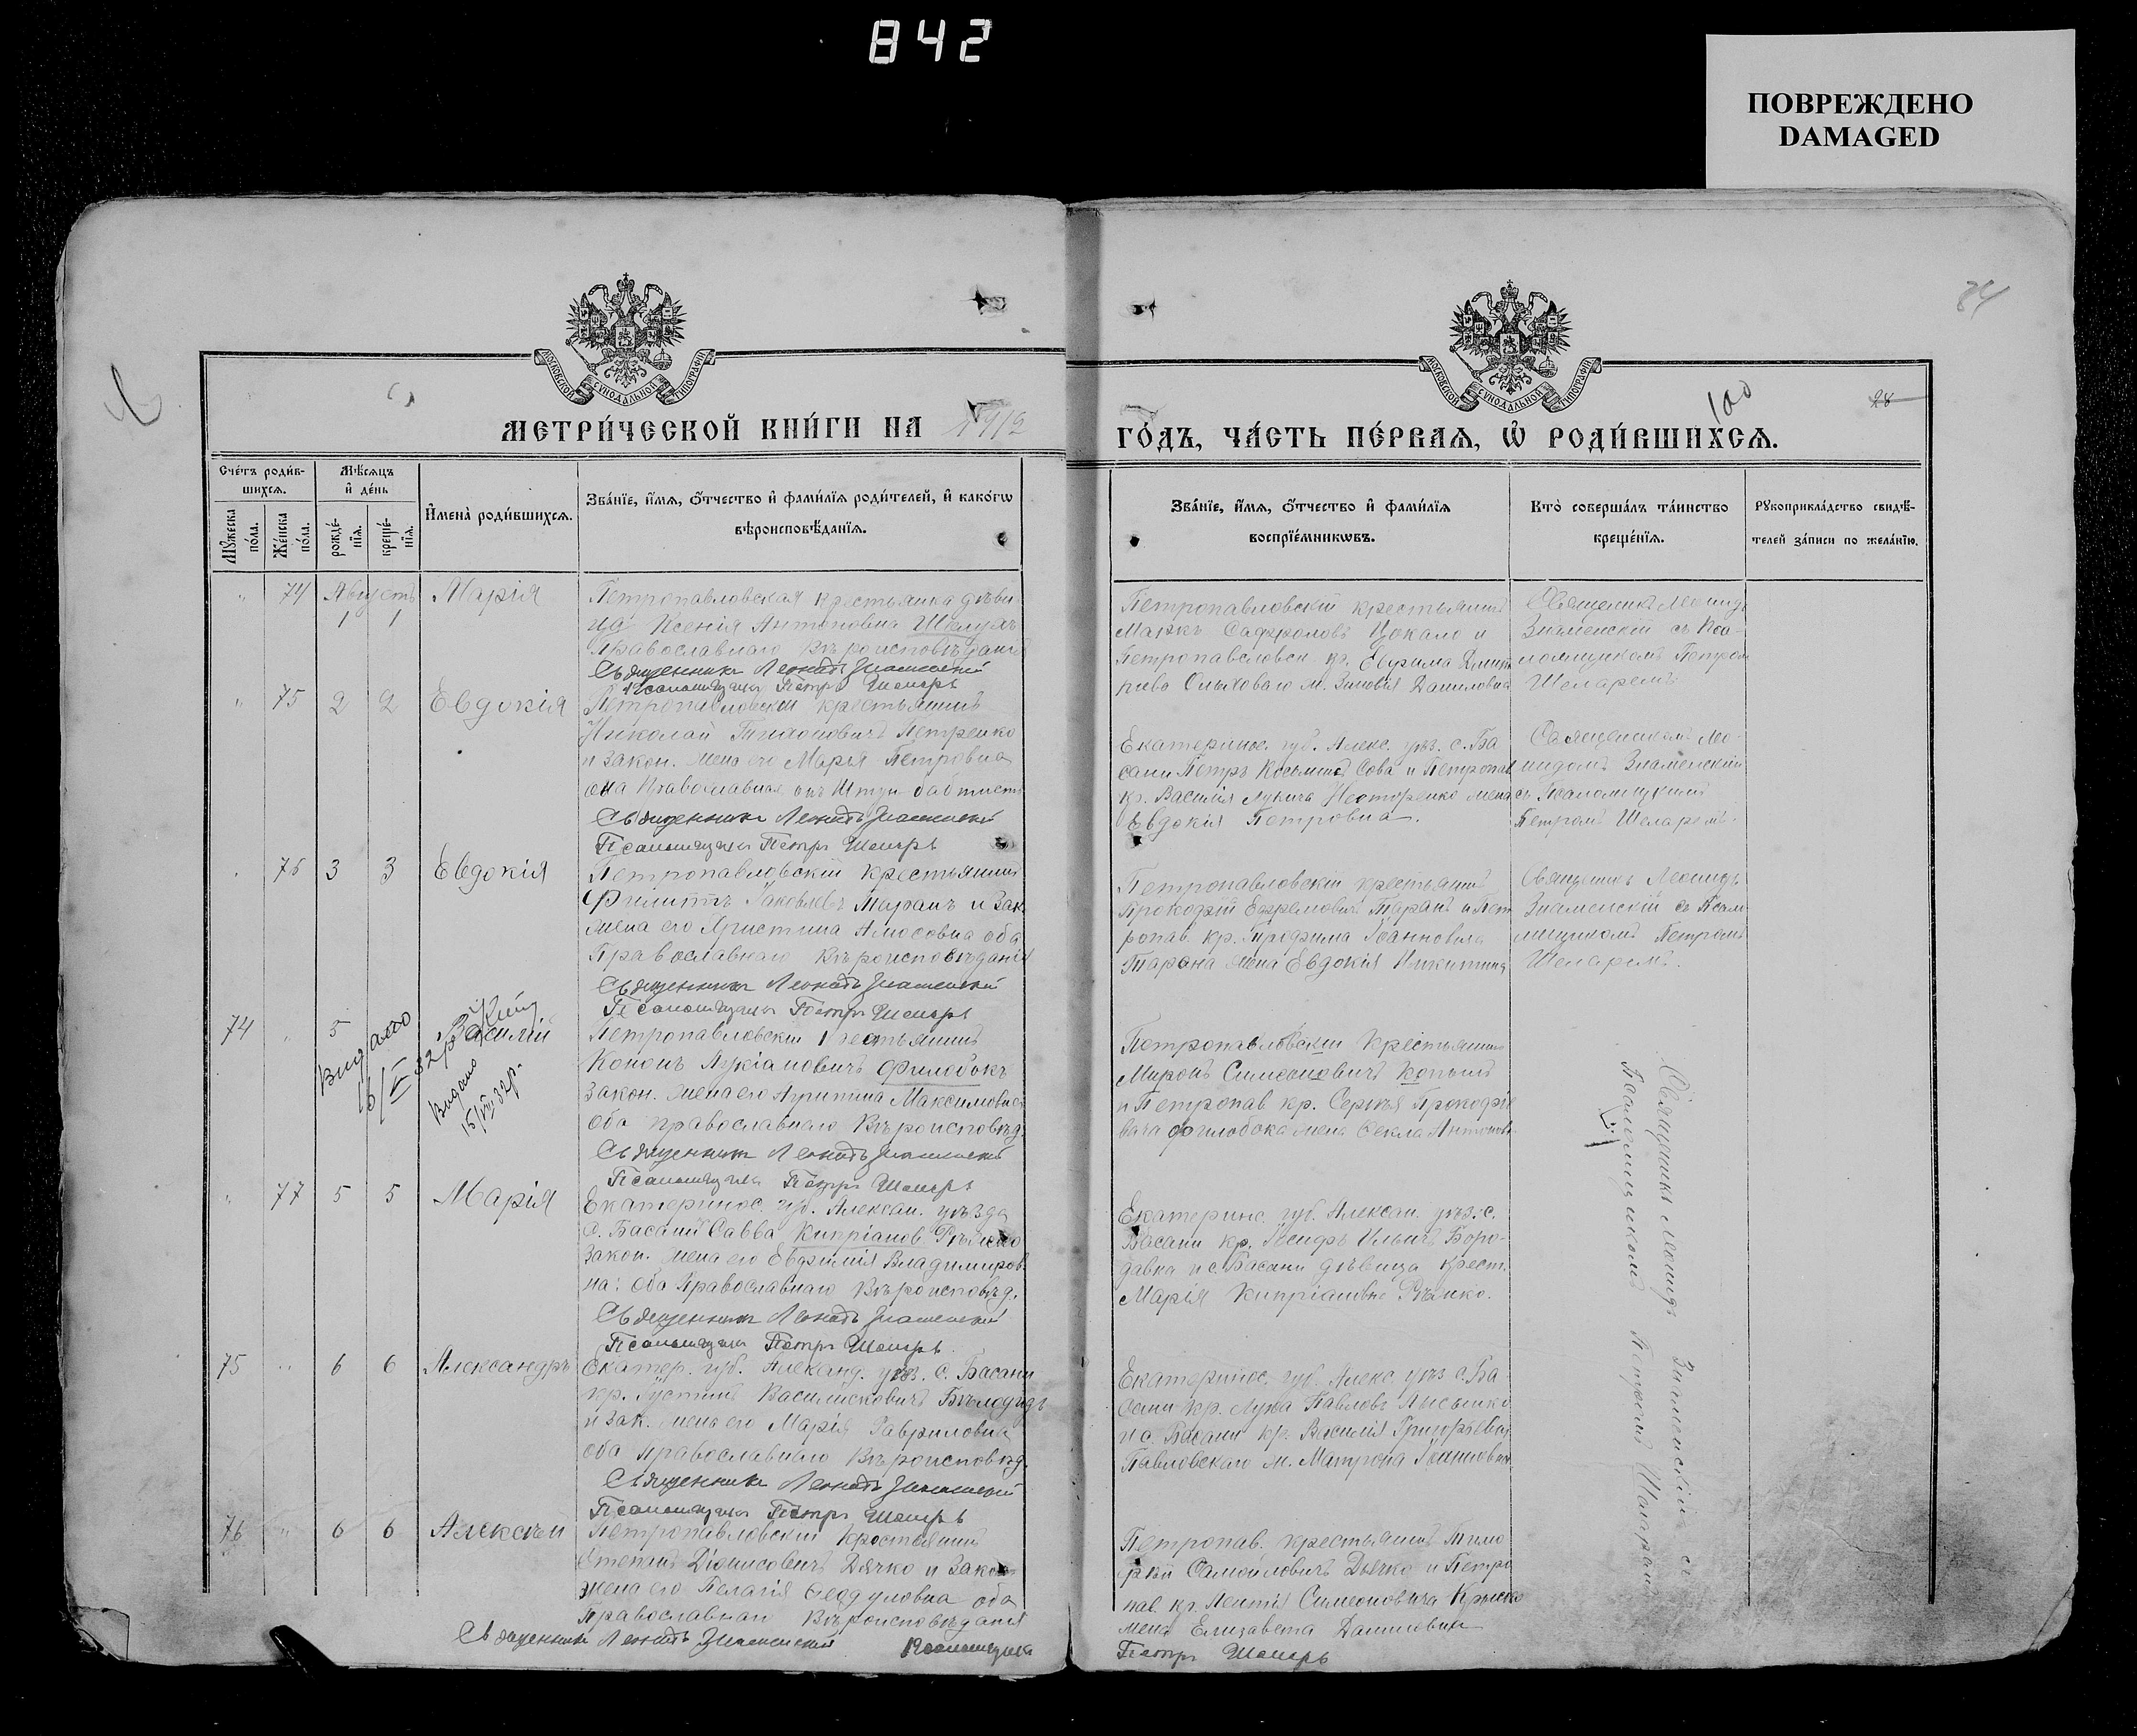 842
ПОВРЕЖДЕНО
DAMAGED
84
МОСКОВСКОЙ СУНОДАЛЬНОЙ ТИПОГРАФІИ
МОСКОВСКОЙ СУНОДАЛЬНОЙ ТИПОГРАФІИ
100
28
МЕТРИ́ЧЕСКОЙ КНИ́ГИ НА 1912
ГО́ДЪ, ЧА́СТЬ ПЕ́РВАѦ, Ѡ҆ РОДИ́ВШИХСѦ.
Сче́тъ роди́в-
шихсѧ.
Мꙋ́жеска по́ла.
Же́нска по́ла.
Мѣ́сѧцъ
и҆ де́нь
рожде́-
нїѧ.
креще́-
нїѧ.
И҆мена̀ роди́вшихсѧ.
Зва́нїе, и҆́мѧ, ѻ҆́тчество и҆ фами́лїѧ роди́телей, и҆ како́гѡ
вѣроисповѣ́данїѧ.
Зва́нїе, и҆́мѧ, ѻ҆́тчество и҆ фами́лїѧ
воспрїе́мникѡвъ.
Кто̀ соверша́лъ та́инство
креще́нїѧ.
Рꙋкоприкла́дство свидѣ́-
телей за́писи по жела́нїю.
" 74 Августъ 1 1 Марія
Петропавловская крестьянка дѣви
ца Ксенія Антоновна Шелухъ
Православнаго Вѣроисповѣданія
Священникъ Леонидъ Знаменскій
Псаломщикъ Петръ Шепарь
Петропавловскій крестьянинъ
Маркъ Цокало и
Петропавловск. кр. Евфима Дмит
ріева м. Зиновія Даниловна
Священникъ Леонидъ
Знаменскій съ Пса-
ломщикомъ Петром
Шепаремъ
" 75 2 2 Евдокія
Петропавловскій крестьянинъ
Николай Тихоновичъ Петренко
и закон. жена его Марія Петровна
она Православная онъ баптистъ
Священникъ Леонидъ Знаменскій
Псаломщикъ Петръ Шепарь
Екатеринос. губ. Алекс. уѣз. с. Ба
сани Петръ Косьминъ Сова и Петропав
кр. Василія Лукича Несторенко жена
Евдокія Петровна.
Священникомъ Лео-
нидомъ Знаменскимъ
съ Псаломщикомъ
Петромъ Шепаремъ.
76 3 3 Евдокія
Петропавловскій крестьянинъ
Филиппъ Іаковлевъ Таранъ и зак.
жена его Христина Амосовна оба
Православнаго Вѣроисповѣданія
Священникъ Леонидъ Знаменскій
Псаломщикъ Петръ Шепарь
Петропавловскій крестьянинъ
Прокофій Ефремовичъ Таранъ и Пет
ропав. кр. Трофима Іоанновича
Тарана жена Евдокія Никитина
Священникъ Леонидъ
Знаменскій съ Псало
мщикомъ Петромъ
Шепаремъ.
74 " 5 Василій
Видано
Видано
15/VII 32р.
Петропавловскій крестьянинъ
Кононъ Лукіановичъ Филобокъ
закон. жена его Агрипина Максимовна
оба православнаго Вѣроисповѣд.
Священникъ Леонидъ Знаменскій
Псаломщикъ Петръ Шепарь
Петропавловскій Крестьянинъ
Миронъ Симеоновичъ
и Петропав кр. Сергѣя Прокофіе
вича Филобока жена Өекла Антонов.
Священникъ Леонидъ Знаменскій съ
Псаломщикомъ Петромъ Шепарем
" 77 5 5 Марія
Екатеринос. губ. Алексан. уѣзда
с. Басани Савва Кипріанов Рѣпко
закон. жена его Евфимія Владимиров
на: оба Православнаго Вѣроисповѣд.
Священникъ Леонидъ Знаменскій
Псаломщикъ Петръ Шепарь.
Екатеринс. губ. Алексан. уѣз. с.
Басани кр. Іосифъ Ильичъ Боро-
давка и с. Басани дѣвица крест.
Марія Кипріановна Рѣпко.
75 " 6 6 Александръ
Екатер. губ. Александ. уѣз. с. Басани
кр. Іустинъ Бѣлодѣдъ
и зак. жена его Марія Гавриловна
оба православнаго Вѣроисповѣд.
Священникъ Леонидъ Знаменскій
Псаломщикъ Петръ Шепарь
Екатеринос. губ. Алекс. уѣз с. Ба
сани кр. Лука Павловъ Лисенко
и с. Басани кр. Василія Григорьева
Павловскаго ж. Матрона Іоаннов.
76 " 6 6 Алексѣй
Петропавловскій крестьянинъ
Степанъ Діонисовичъ Дячко и закон
жена его Пелагія Ѳеодуловна оба
Православнаго Вѣроисповѣданія
Священникъ Леонидъ Знаменскій Псаломщикъ
Петропав. крестьянинъ Тимо
фей Самойловичъ Дьячко и Петро
пав. кр. Леонтія Симеоновича
жена Елизавета Даниловна
Петръ Шепарь